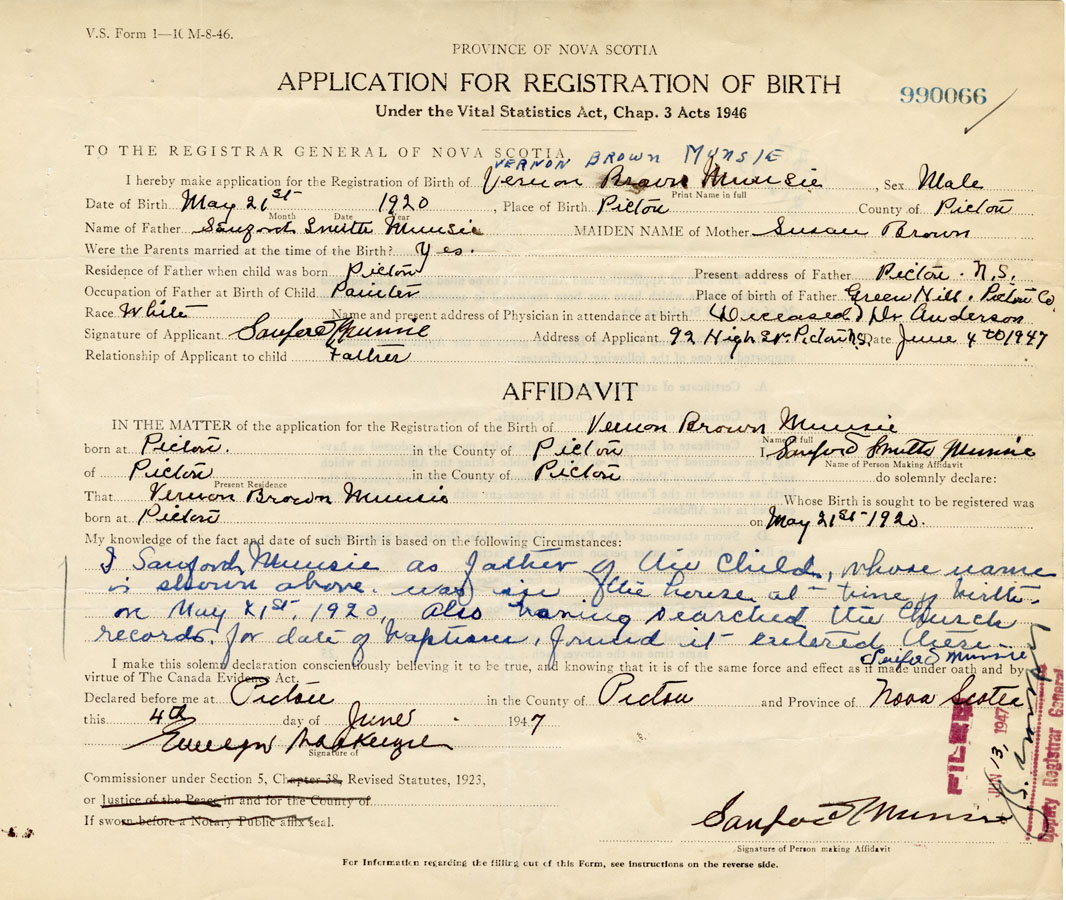 V.S. Form 1—10 M-8-46.
PROVINCE OF NOVA SCOTIA
APPLICATION FOR REGISTRATION OF BIRTH
990066
Under the Vital Statistics Act, Chap. 3 Acts 1946
TO THE REGISTRAR GENERAL OF NOVA SCOTIA
VERNON BROWN MUNSIE
I hereby make application for the Registration of Birth of Vernon Brown Munsie, Sex Male
Print Name in full
Date of Birth May 21st 1920, Place of Birth Pictou County of Pictou
Month Date Year
Name of Father Sanford Smith Munsie MAIDEN NAME of Mother Susan Brown
Were the Parents married at the time of the Birth? Yes.
Residence of Father when child was born Pictou Present address of Father Pictou. N.S.
Occupation of Father at Birth of Child Painter Place of birth of Father Green Hill. Pictou Co
Race White Name and present address of Physician in attendance at birth (Deceased) Dr Anderson
Signature of Applicant Sanford Munsie Address of Applicant 92 High St. Pictou N.S. Date June 4th 1947
Relationship of Applicant to child Father
AFFIDAVIT
IN THE MATTER of the application for the Registration of the Birth of Vernon Brown Munsie
Name in full
born at Pictou. in the County of Pictou I Sanford Smith Munsie
Name of Person Making Affidavit
of Pictou in the County of Pictou do solemnly declare:
Present Residence
That Vernon Brown Munsie Whose Birth is sought to be registered was
born at Pictou on May 21st 1920.
My knowledge of the fact and date of such Birth is based on the following Circumstances:
I Sanford Munsie as father of the child, whose name
is shown above. was in the house at time of birth.
on May 21st, 1920, also having searched the Church
records. for date of baptism, found it entered there.
Sanford Munsie
I make this solemn declaration conscientiously believing it to be true, and knowing that it is of the same force and effect as if made under oath and by
virtue of The Canada Evidence Act.
Declared before me at Pictou in the County of Pictou and Province of Nova Scotia
this 4th day of June 1947
Evelyn MacKenzie
Signature of
Commissioner under Section 5, Chapter 38, Revised Statutes, 1923,
or Justice of the Peace in and for the County of
If sworn before a Notary Public affix seal.
FILED
JUN 13, 1947
Deputy Registrar General
Sanford Munsie
Signature of Person making Affidavit
For Information regarding the filling out of this Form, see instructions on the reverse side.